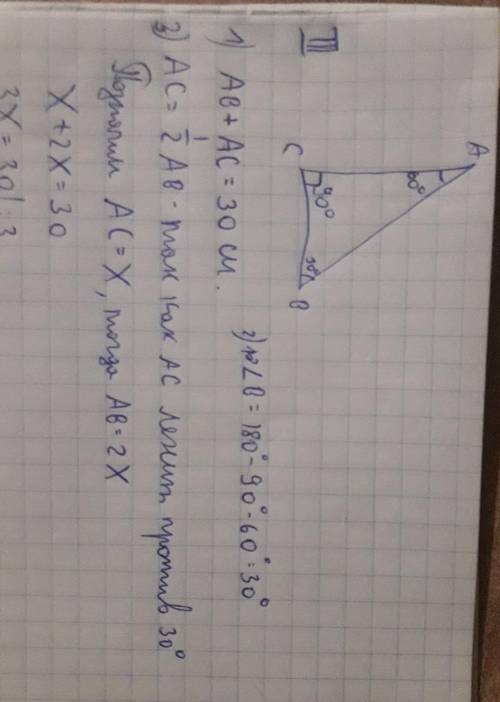 III
A
60°
C
90°
30°
B
1) AB + AC = 30 см.
2) ∠B = 180° - 90° - 60° = 30°
3) AC = 1/2 AB - так как AC лежит против 30°
AC = X, тогда AB = 2X
X + 2X = 30
3X = 30 | : 3